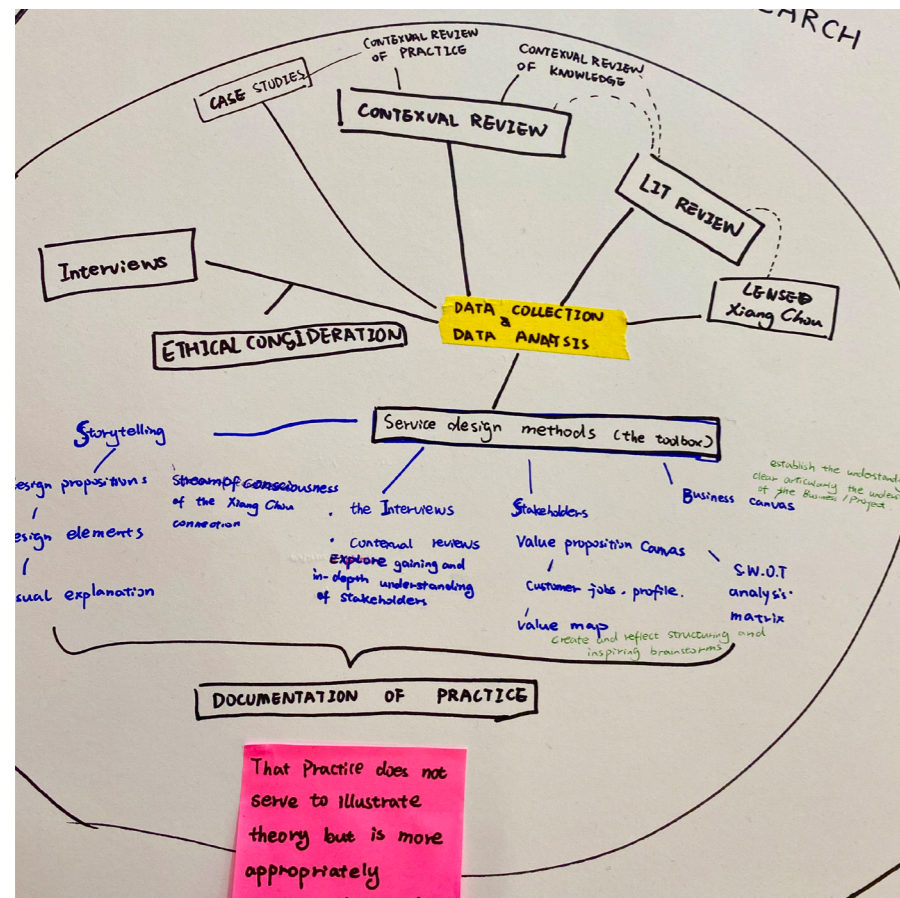 EARCH
CONTEXUAL REVIEW
OF PRACTICE
CONTEXUAL REVIEW
OF KNOWLEDGE
CASE STUDIES
CONTEXUAL REVIEW
LIT REVIEW
LENSED
Xiang Chou
Interviews
ETHICAL CONSIDERATION
DATA COLLECTION
&
DATA ANALYSIS
Service design methods (the toolbox)
Storytelling
esign propositions
esign elements
sual explanation
Stream of consciousness
of the Xiang Chou
connection
the Interviews
Contexual reviews
Explore gaining and
in-depth understanding
of stakeholders
Stakeholders
Value proposition Canvas
Customer jobs. profile.
Value map
create and reflect structuring and
inspiring brainstorms
Business canvas
establish the understand
clear articularly the
of the Business/Project.
S.W.O.T
analysis.
matrix
DOCUMENTATION OF PRACTICE
That Practice does not
serve to illustrate
theory but is more
appropriately